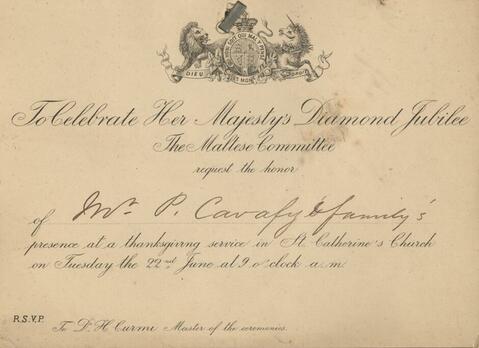 HONI SOIT QUI MAL Y PENSE
DIEU ET MON DROIT
To Celebrate Her Majesty's Diamond Jubilee
The Maltese Committee
request the honor
of Mr. P. Cavafy & family's
presence at a thanksgiving service in St. Catherine's Church
on Tuesday the 22nd June at 9 o'clock a.m.
R.S.V.P.
To Dr. H. Curmi Master of the ceremonies.